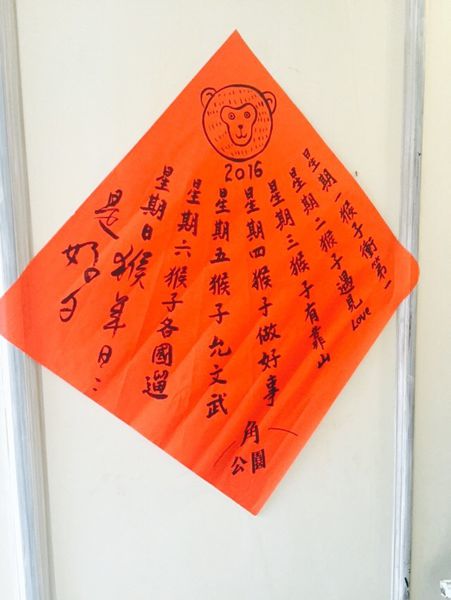 2016
星期一猴子衝第一
星期二猴子遇見Love
星期三猴子有靠山
星期四猴子做好事
星期五猴子允文武
星期六猴子各國遛
星期日猴年日:
是好日
角
公園